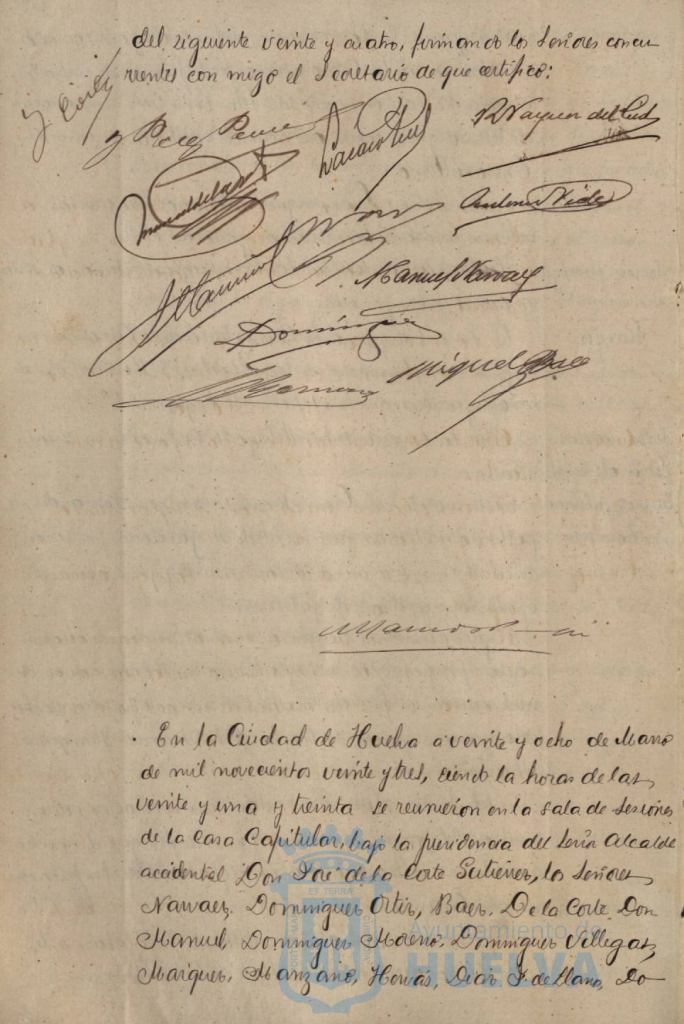 del siguiente veinte y cuatro, firmando los Señores concu
rrentes con migo el Secretario de que certifico:
J Corte
Manuel Narvaez
Dominguez
Miguel Baez
En la Ciudad de Huelva a veinte y ocho de Marzo
de mil novecientos veinte y tres, siendo la horas de las
veinte y una y treinta se reunieron en la sala de Sesiones
de la Casa Capitular, bajo la presidencia del Señor Alcalde
accidental Don José de la Corte Gutierrez, los Señores
Narvaez. Dominguez Ortiz, Baez. De la Corte Don
Manuel, Dominguez Moreno, Dominguez Villegas,
Marquez, Manzano, Diaz P. de Llano, Do
Ayuntamiento de
HUELVA